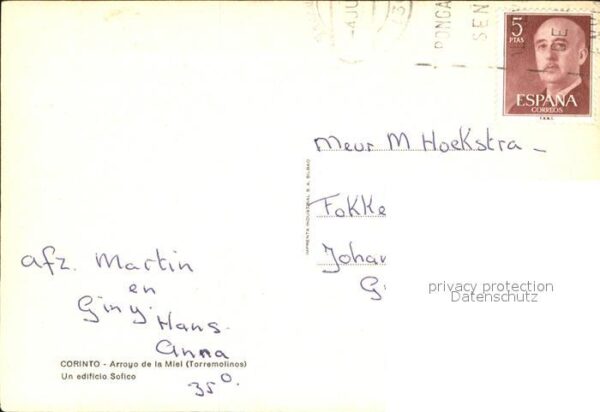 5
PTAS
ESPAÑA
CORREOS
PONGA
SEN
Meur M Hoekstra -
Fokke
Johan
G
privacy protection
Datenschutz
IMPRENTA INDUSTRIAL S. A. BILBAO
afz. Martin
en
Giny.
Hans.
Anna
35°.
CORINTO - Arroyo de la Miel (Torremolinos)
Un edificio Sofico